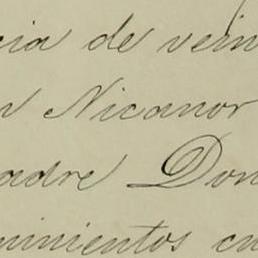 cia de vein
n Nicanor
adre Don
imientos en